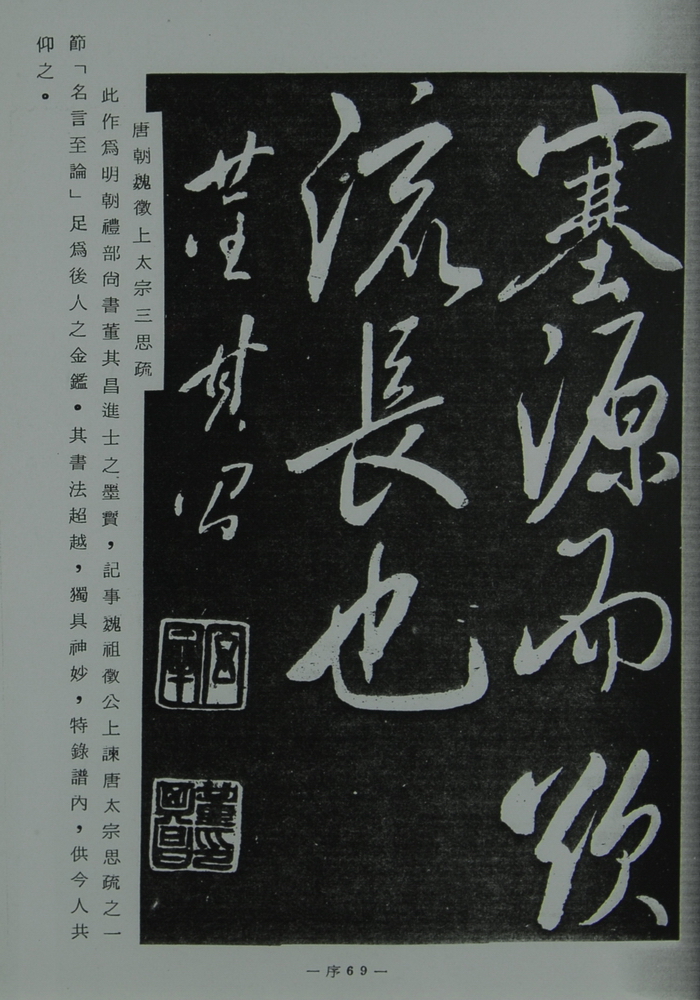 塞源而欲
流長也
董其昌
宮詹
董其昌印
唐朝魏徵上太宗三思疏
此作爲明朝禮部尚書董其昌進士之墨寶，記事魏祖徵公上諫唐太宗思疏之一
節「名言至論」足爲後人之金鑑。其書法超越，獨具神妙，特錄譜內，供今人共
仰之。
—序69—